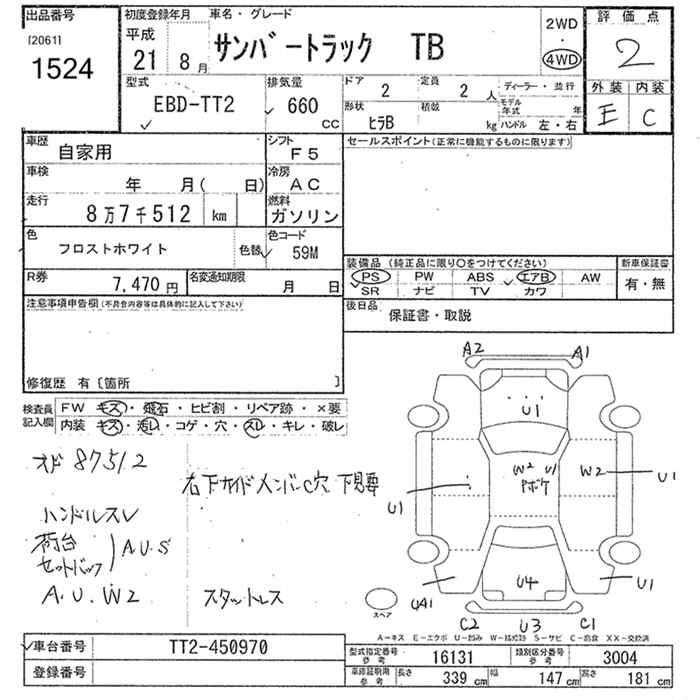 出品番号
[2061]
1524
初度登録年月
平成
21 8月
車名・グレード
サンバートラック TB
2WD
・
4WD
評価点
2
外装 内装
E C
型式
EBD-TT2
排気量
660
CC
ドア
2
定員
2 人
形状
ヒラB
積載
kg
ディーラー・並行
モデル年式 年
ハンドル 左・右
車歴
自家用
シフト
F5
車検
年 月( 日)
冷房
AC
走行
8万7千512 km
燃料
ガソリン
色
フロストホワイト
色替
色コード
59M
R券
7,470 円
名変通知期限
月 日
セールスポイント(正常に機能するものに限ります)
装備品(純正品に限り○をつけてください)
PS PW ABS エアB AW
SR ナビ TV カワ
新車保証書
有・無
後日品
保証書・取説
注意事項申告欄(不具合内容等は具体的に記入して下さい)
修復歴 有〔箇所 〕
検査員記入欄
FW キズ・飛石・ヒビ割・リペア跡・×要
内装 キズ・汚レ・コゲ・穴・スレ・キレ・破レ
オド 87512
右下サイドメンバーC穴 下見要
ハンドルスレ
荷台
セットバック
A.U.S
A.U.W2
スタットレス
A2 A1
U1
W2 U1
Pボケ
W2 U1
U1
UA1
U4
U1
C2 U3 C1
スペア
A-キズ E-エクボ U-凹み W-補修跡 S-サビ C-腐食 XX-交換済
車台番号
TT2-450970
登録番号
型式指定番号
参考
16131
類別区分番号
参考
3004
車庫証明用
参考
長さ
339 cm
幅
147 cm
高さ
181 cm